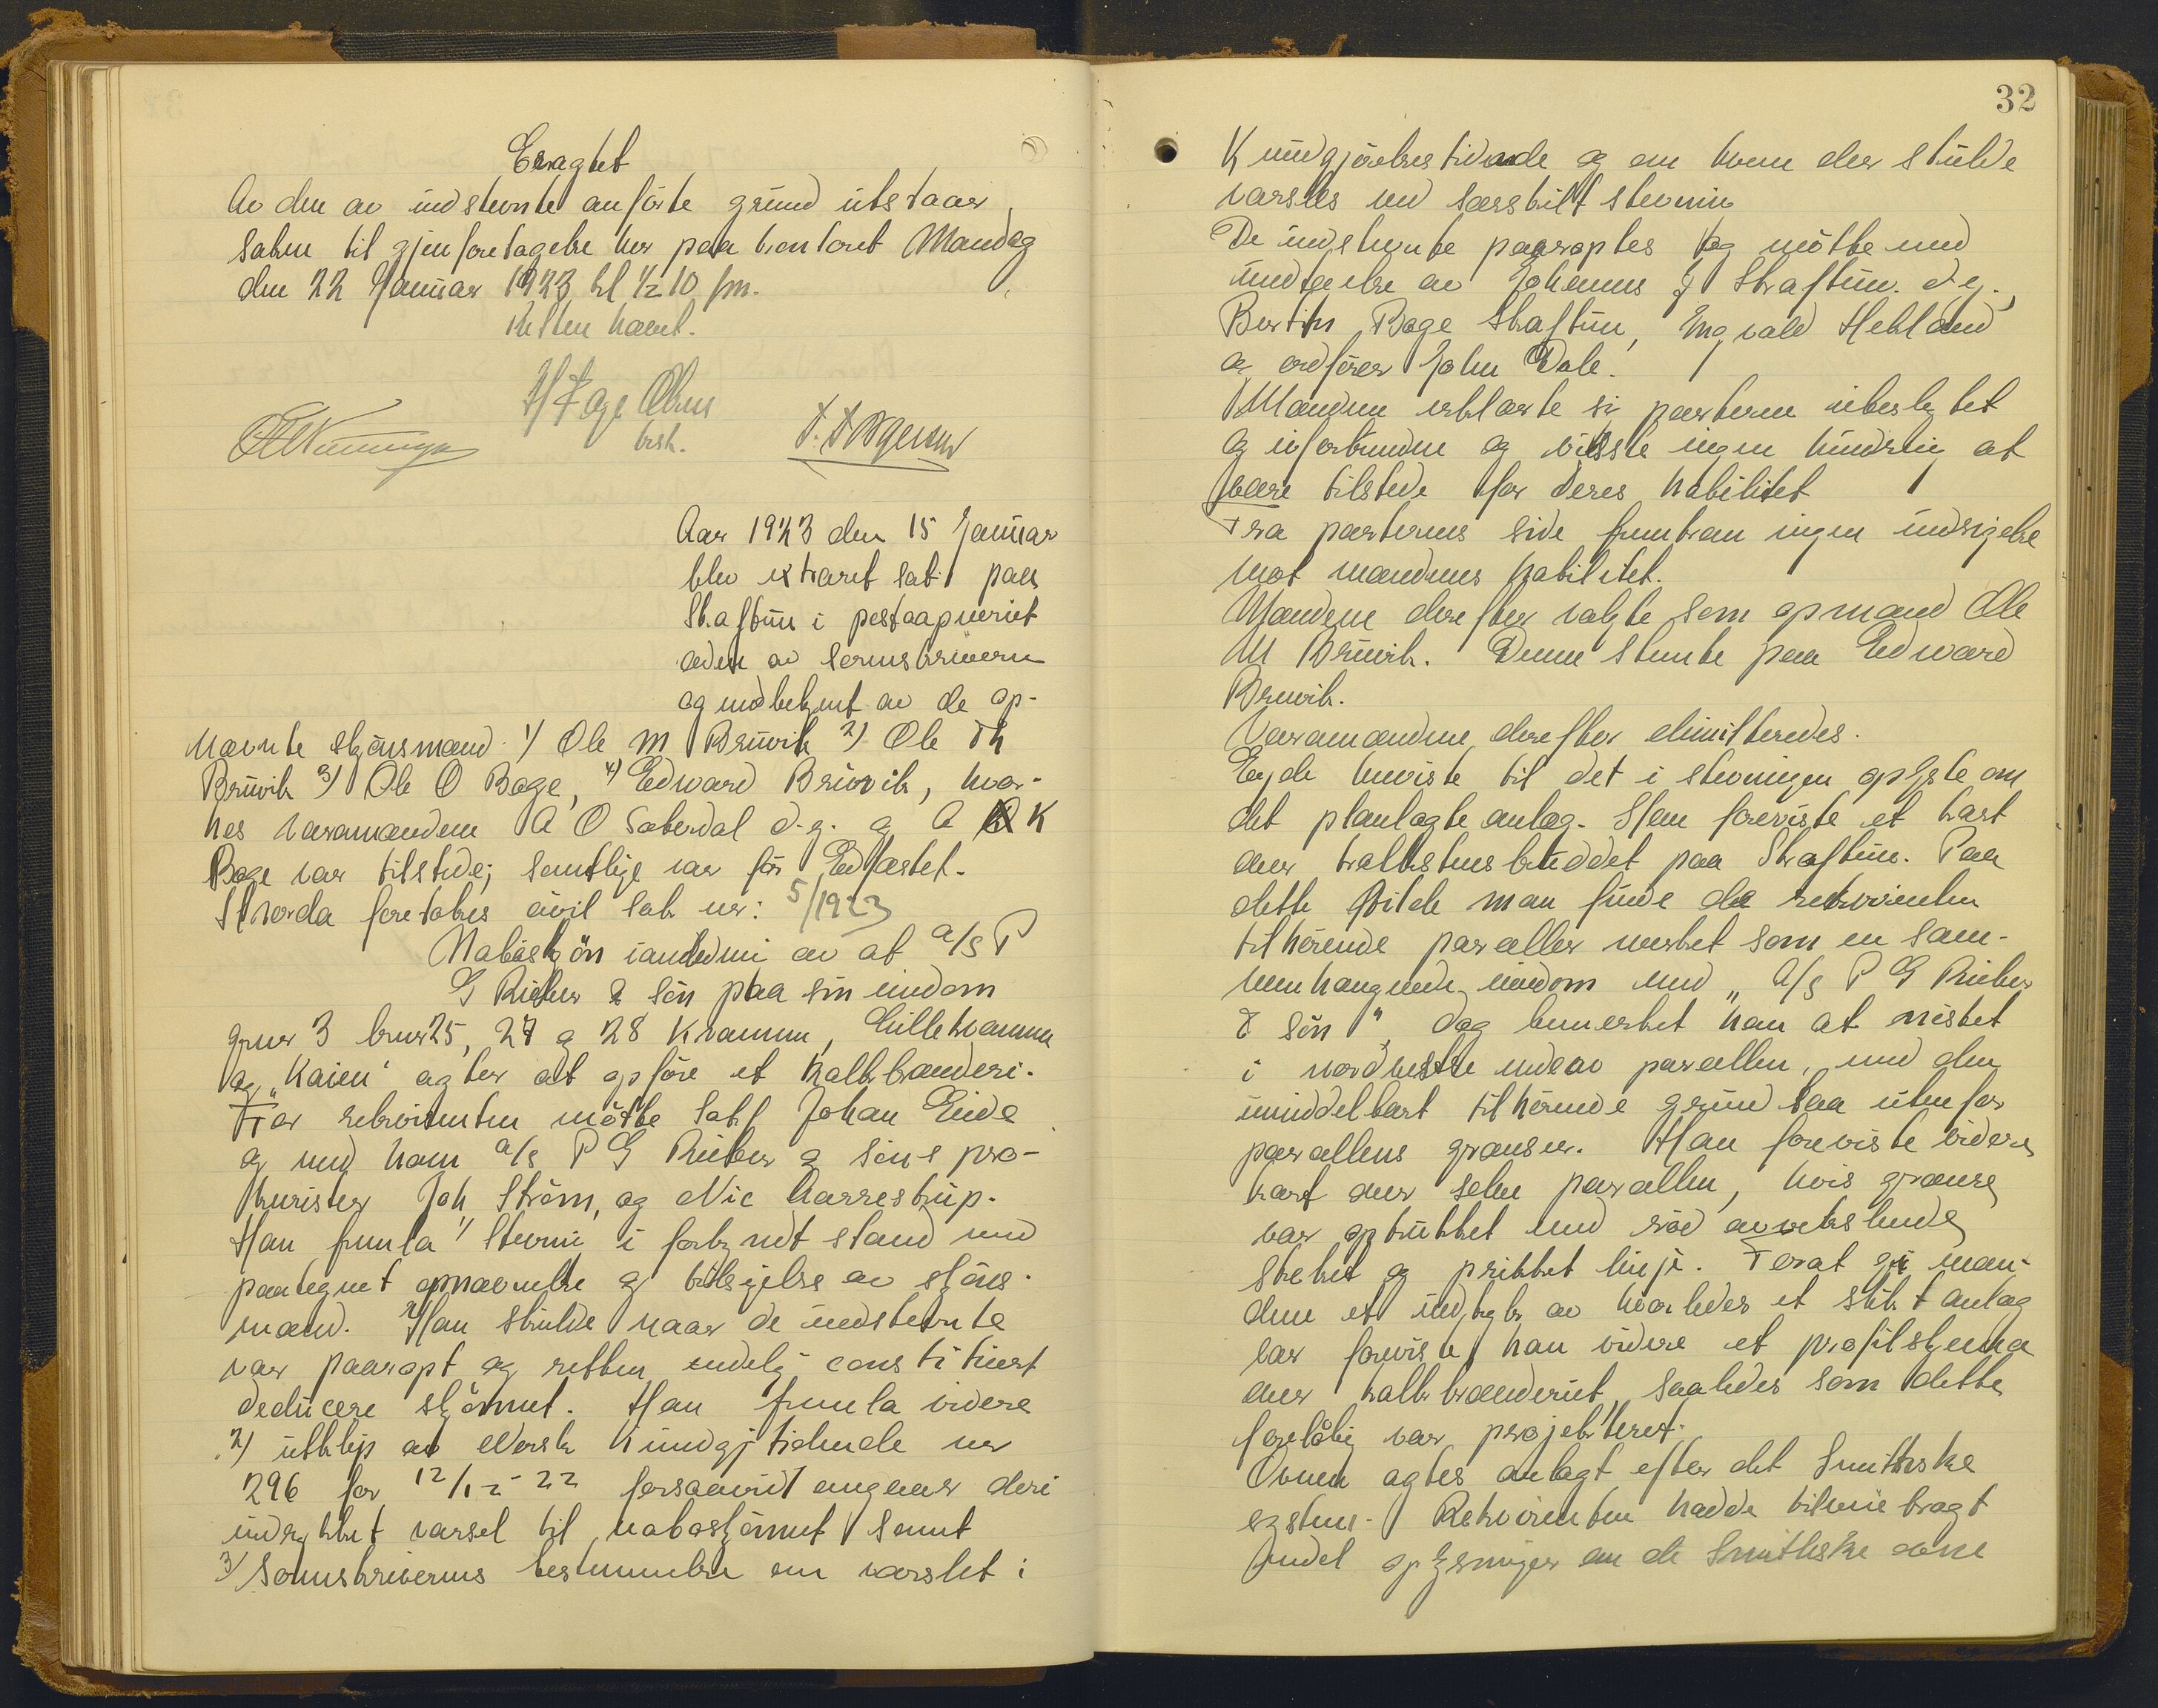 Eragtet
Av den av indstevnte anförte grund utstaar
saken til gjenforetagelse her paa kontoret Mandag
den 22 Januar 1923 kl ½ 10 fm.
Retten hævet.
H Fage Olsen
besk.
Aar 1923 den 15 Januar
blev extraret sat paa
Skaftun i postaapneriet
ledet av sorenskriveren
og medbetjent av de op-
nævnte skjönsmænd 1) Ole M Bruvik 2) Ole Th
Bruvik 3) Ole O Boge, 4) Edward Bruvik, hvor-
hos varamændene A O Soberdal d.y. og O K
Boge var tilstede; samtlige var för Edfæstet.
Hvorda foretokes civil sak nr: 5/1923
Naboskjön ianledning av at A/S P
G Rieber & Sön paa sin eiendom
gnr 3 bnr 25, 27 og 28 Kvamme, Lillekvamme
og "Kaien" agter at opföre et kalkbrænderi.
For rekvirenten mötte sakf Johan Eide
og med ham A/S P G Rieber & Söns pro-
kurister Joh Ström, og Nic Aarrestup.
Han fremla 1) Stevning i forkyndt stand med
paategnet opnævnelse og tilsigelse av skjöns-
mænd. Han skulde naar de indstevnte
var paaropt og retten endelig constituert
deducere skjönnet. Han fremla videre
2) utklip av Norsk Kundgj tidende nr
296 for 12/12-22 forsaavidt angaar deri
indrykket varsel til naboskjönnet samt
3) Sorenskriverens bestemmelse om varslet i
32
Kundgjörelsestidende og om hvem der skulde
varsles ved særskilt stevning
De indstevnte paaroptes og mötte med
undtagelse av Johannes J Skaftun d.y.,
Bertin Boge Skaftun, Ingvald Helland
og ordförer John Dale.
Mændene erklærte sig parterne ubeslegtet
og uforbundne og visste ingen hindring at
være tilstede for deres habilitet
Fra parternes side fremkom ingen indsigelse
mot mændenes habilitet.
Mændene derefter valgte som opmand Ole
M Bruvik. Denne stemte paa Edward
Bruvik.
Varamændene derefter dimitteredes.
Eide henviste til det i stevningen oplyste om
det planlagte anlæg. Han foreviste et kart
over kalkstensbruddet paa Skaftun. Paa
dette vilde man finde de rekvirenten
tilhörende parceller merket som en sam-
menhængende eiendom med "A/S P G Rieber
& Sön". Dog bemerket han at nöstet
i nordvestre ende av parcellen, med den
umiddelbart tilhörende grund laa utenfor
parcellens grænser. Han foreviste videre
kart over selve parcellen, hvis grænse
var optrukket med röd avvekslende
streket og prikket linje. For at gi mæn-
dene et indtryk av hvorledes et slikt anlæg
var foreviste han videre et profilskema
over kalkbrænderiet saaledes som dette
forelöbig var projekteret.
Ovnen agtes anlagt efter det Smithske
system. Rekvirenten hadde tilveiebragt
endel oplysninger om de Smithske ovne